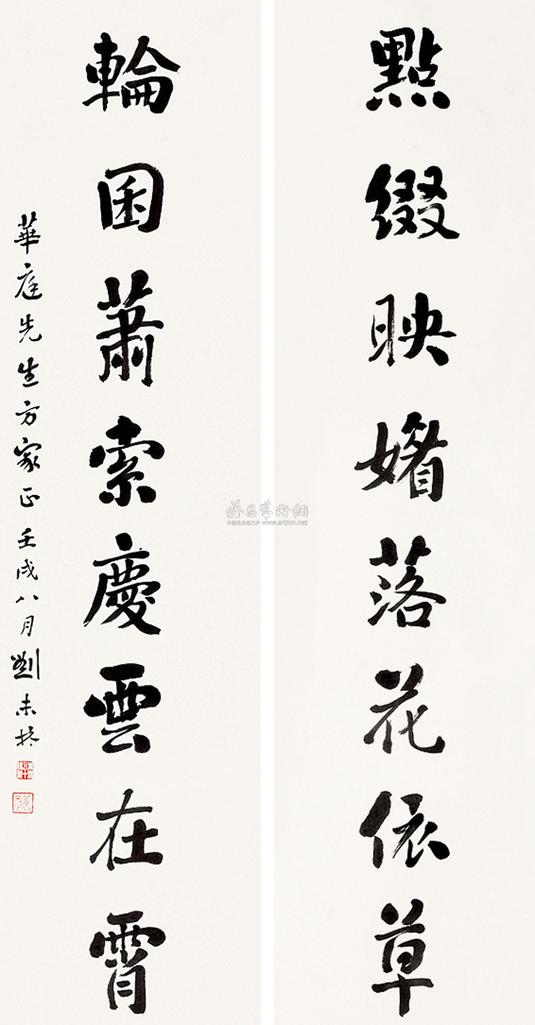 點綴映媚落花依草
輪囷蕭索慶雲在霄
華庭先生方家正 壬戌八月劉未林
雅昌藝術網
www.artron.net